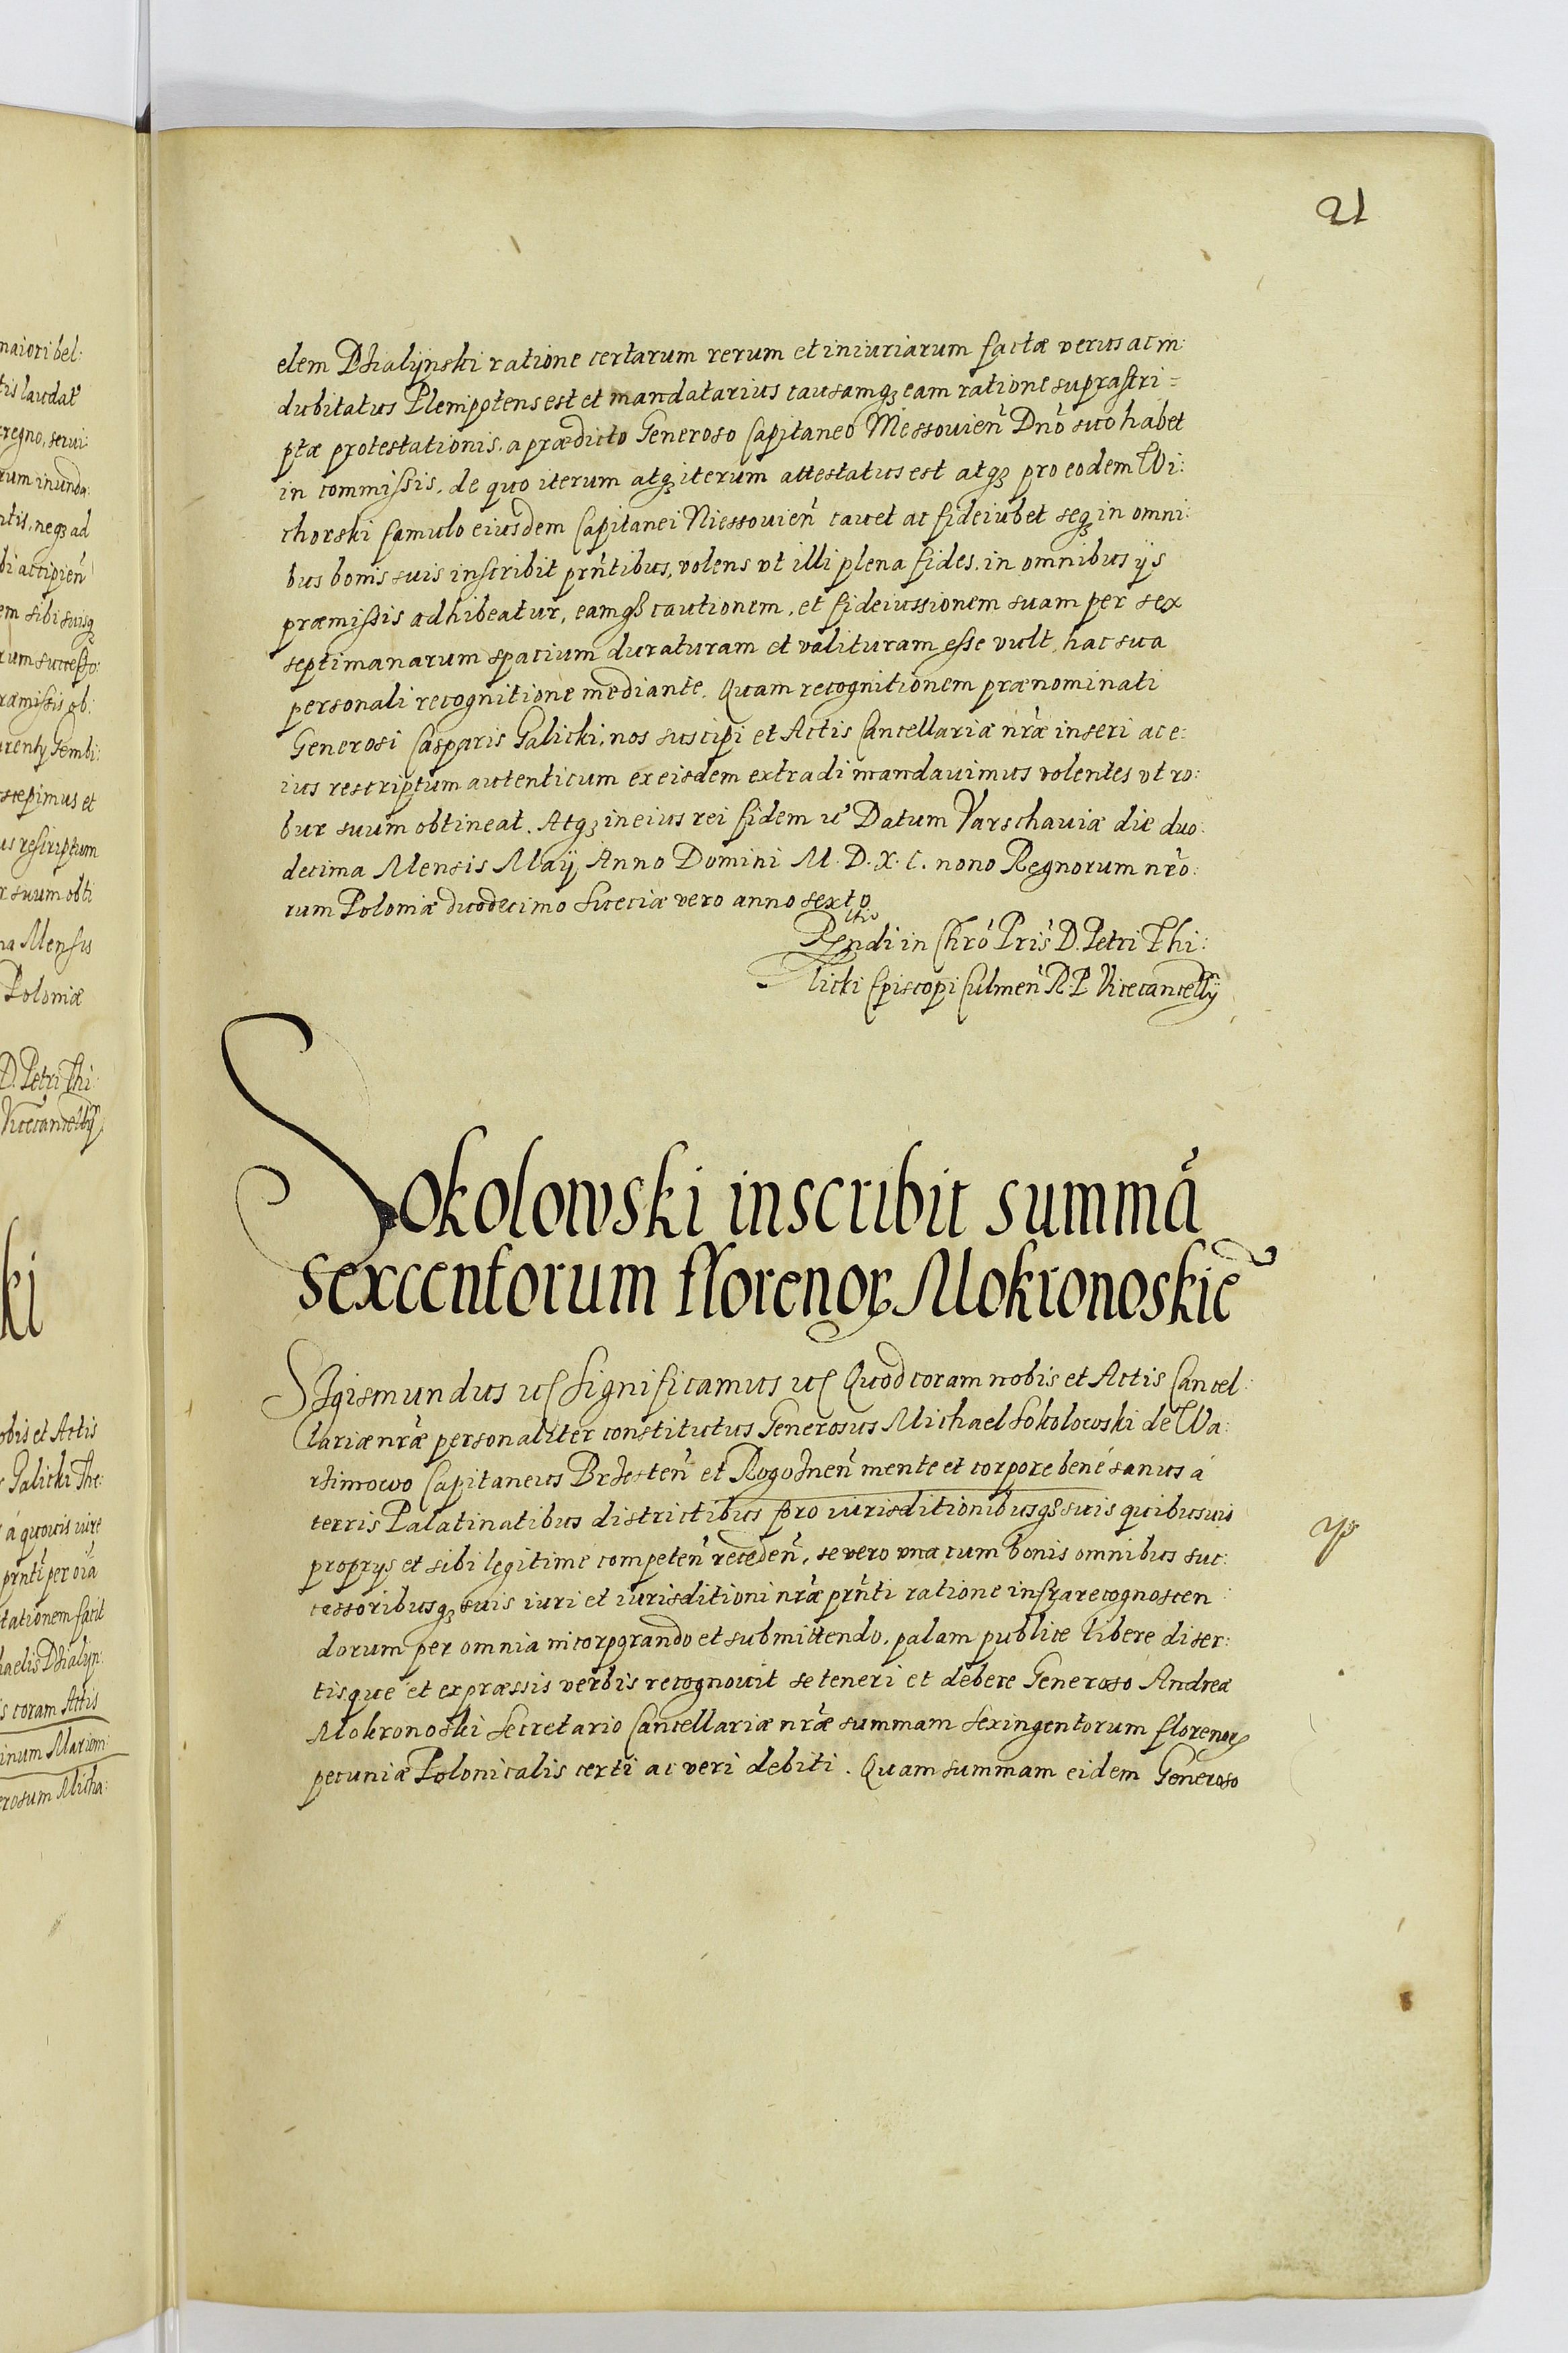 21
elem Dzialijnski ratione certarum rerum et iniuriarum factæ verus ac in:
dubitatus Plenipotens est et mandatarius causamqȝ eam ratione suprascri=
ptæ protestationis, a prædicto Generoso Capitaneo Niessouien̄ Dn̄o suo habet
in commissis, de quo iterum atqȝ iterum attestatus est atqȝ pro eodem Wi:
chorski famulo eiusdem Capitanei Niessouien̄ cauet ac fideiubet seqȝ in omni:
bus bonis suis inscribit prn̄tibus, volens vt illi plena fides, in omnibus ijs
præmissis adhibeatur, eamqȝ cautionem, et fideiussionem suam per sex
septimanarum spatium duraturam et valituram esse vult, hac sua
personali recognitione mediante. Quam recognitionem prænominati
Generosi Casparis Galicki, nos suscipi et Actis Cancellariæ nr̄æ inseri ac e:
ius rescriptum autenticum ex eisdem extradi mandauimus volentes vt ro:
bur suum obtineat. Atqȝ in eius rei fidem uc̄ Datum Varschauiæ die duo:
decima Mensis Maij Anno Domini M. D. X. C. nono Regnorum nr̄o:
rum Poloniæ duodecimo Sueciæ vero anno sexto
Rltio
Rndi in Chr̄o Pris̄ D. Petri Thi:
licki Episcopi Culmen̄ R. P. Vicecancellȳ
Sokolowski inscribit summā
sexcentorum florenoꝝ Mokronoskie
SJgismundus uc̄ Significamus uc̄ Quod coram nobis et Actis Cancel:
lariæ nr̄æ personaliter constitutus Generosus Michael Sokolowski de Wa:
rzimowo Capitaneus Brzesten̄ et Rogoznen̄ mente et corpore bené sanus á
terris Palatinatibus districtibus foro iurisditionibusqȝ suis quibusuis
proprijs et sibi legitime competen̄ receden̄, se vero vna cum bonis omnibus suc:
cessoribusqȝ suis iuri et iurisditioni nr̄æ prn̄ti ratione infrarecognoscen:
dorum per omnia incorporando et submittendo, palam publice libere diser:
tisque et expræssis verbis recognouit se teneri et debere Generoso Andreæ
Mokronoski Secretario Cancellariæ nr̄æ summam sexingentorum florenoꝝ
pecuniæ Polonicalis certi ac veri debiti. Quam summam eidem Generoso